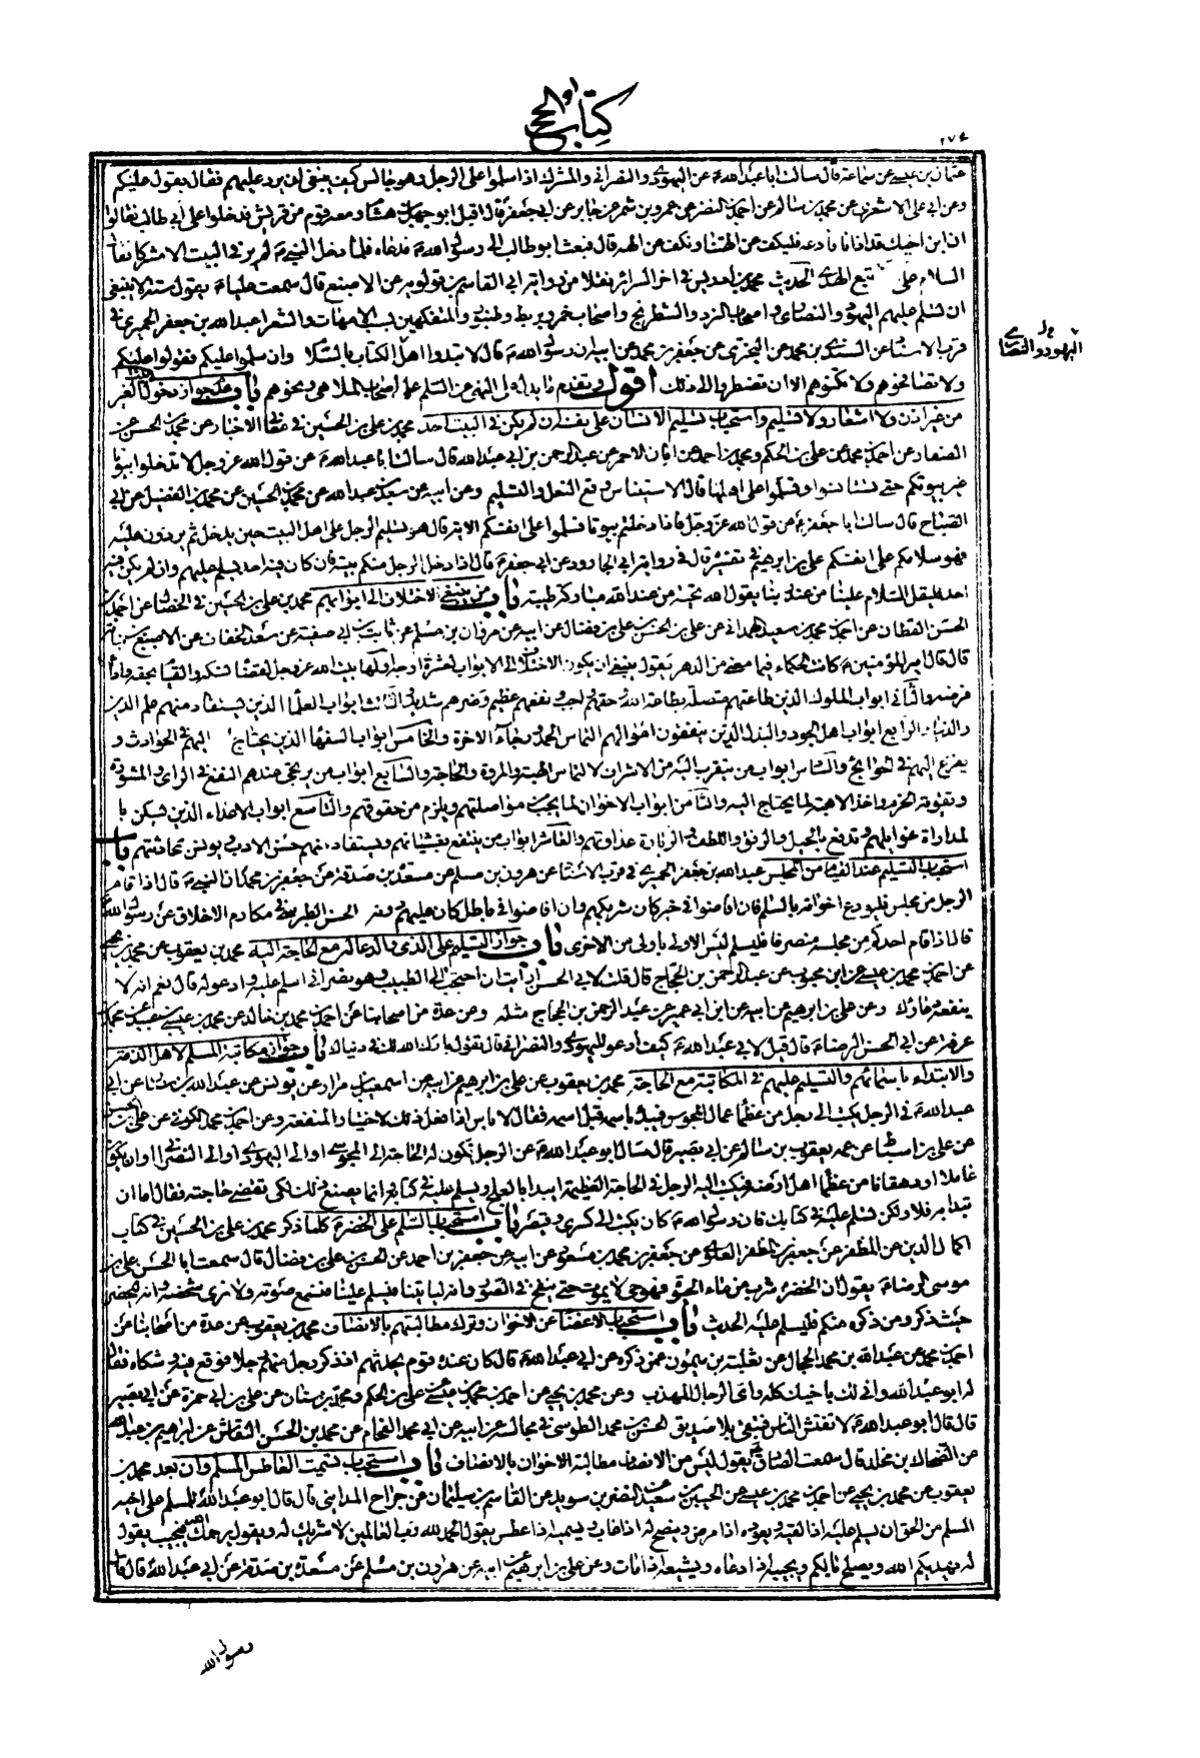 كتاب الحج
عثمان بن عيسى عن سماعة قال سالت ابا عبدالله ع عن اليهودى والنصرانى والمشرك اذا سلموا على الرجل وهو جالس كيف ينبغى ان يرد عليهم فقال يقول عليكم
وعن ابى على الاشعرى عن محمد بن سالم عن احمد بن النضر عن عمرو بن شمر عن جابر عن ابى جعفر ع قال اقبل ابو جهل بن هشام ومعه قوم من قريش فدخلوا على ابى طالب فقالوا
ان ابن اخيك قد اذانا فادعه فليكف عن الهتنا ونكف عن الهه قال فبعث ابو طالب الى رسول الله ص فدعاه فلما دخل النبى ص لم ير فى البيت الا مشركا فقال
السلام على من اتبع الهدى الحديث محمد بن ادريس فى اخر السرائر نقلا من رواية ابى القاسم بن قولويه عن الاصبغ قال سمعت عليا ع يقول ستة لا ينبغى
ان تسلم عليهم اليهود والنصارى واصحاب النرد والشطرنج واصحاب خمر وبربط وطنبور والمتفكهين بسب الامهات والشعراء عبدالله بن جعفر الحميرى فى
قرب الاسناد عن السندى بن محمد عن ابى البخترى عن جعفر بن محمد عن ابيه ان رسول الله ص قال لا تبدوا اهل الكتاب بالسلام وان سلموا عليكم فقولوا عليكم
ولا تصافحوهم ولا تكنوهم الا ان تضطروا الى ذلك اقول وتقدم ما يدل على النهى عن التسليم على اصحاب الملاهى ونحوهم باب عدم جواز دخول بيت الغير
من غير اذن ولا اشعار ولا تسليم واستحباب تسليم الانسان على نفسه ان لم يكن فى البيت احد محمد بن على بن الحسين فى معانى الاخبار عن محمد بن الحسن عن
الصفار عن احمد بن محمد عن على بن الحكم ومحمد بن احمد عن ابان الاحمر عن عبد الرحمن بن ابى عبدالله قال سالت ابا عبدالله ع عن قول الله عز وجل لا تدخلوا بيوتا
غير بيوتكم حتى تستانسوا وتسلموا على اهلها قال الاستيناس وقع النعل والتسليم وعن ابيه عن سعد بن عبدالله عن محمد بن الحسين عن محمد بن الفضيل عن ابى
الصباح قال سالت ابا جعفر ع عن قول الله عز وجل فاذا دخلتم بيوتا فسلموا على انفسكم الاية قال هو تسليم الرجل على اهل البيت حين يدخل ثم يردون عليه
فهو سلامكم على انفسكم على بن ابراهيم فى تفسيره قال فى رواية ابى الجارود عن ابى جعفر ع قال اذا دخل الرجل منكم بيته فان كان فيه احد يسلم عليهم وان لم يكن فيه
احد فليقل السلام علينا من عند ربنا يقول الله تحية من عند الله مباركة طيبة باب من ينبغى الاختلاف الى ابوابهم محمد بن على بن الحسين فى الخصال عن احمد بن
الحسن القطان عن احمد بن محمد بن سعيد الهمدانى عن على بن الحسن بن على بن فضال عن ابيه عن مروان بن مسلم عن ثابت بن ابى صفية عن سعد الخفاف عن الاصبغ بن نباتة
قال قال امير المؤمنين ع كانت الحكماء فيما مضى من الدهر يقول ينبغى ان يكون الاختلاف الى الابواب لعشرة اوجه اولها بيت الله عز وجل لقضاء نسكه والقيام بحقه واداء
فرضه والثانى ابواب الملوك الذين طاعتهم متصلة بطاعة الله وحقهم واجب ونفعهم عظيم وضرهم شديد والثالث ابواب العلماء الذين يستفاد منهم علم الدين
والدنيا والرابع ابواب اهل الجود والبذل الذين ينفقون اموالهم التماس الحمد ورجاء الاخرة والخامس ابواب السفهاء الذين يحتاج اليهم فى الحوادث و
يفزع اليهم فى الحوايج والسادس ابواب من يتقرب اليه من الاشراف لالتماس الهيئة والمروة والحاجة والسابع ابواب من يرتجى عندهم النفع فى الراى والمشورة
وتقوية الحزم واخذ الاهبة لما يحتاج اليه والثامن ابواب الاخوان لما يجب من مواصلتهم ويلزم من حقوقهم والتاسع ابواب الاعداء الذين تسكن با
لمداراة غوايلهم وتدفع بالحيل والرفق واللطف والزيارة عداوتهم والعاشر ابواب من ينتفع بغشيانهم ويستفاد منهم حسن الادب ويونس بمحادثتهم باب
استحباب التسليم عند القيام من المجلس عبدالله بن جعفر الحميرى فى قرب الاسناد عن هرون بن مسلم عن مسعدة بن صدقة عن جعفر بن محمد ان النبى ص قال اذا قام
الرجل من مجلس فليودع اخوانه بالسلم فان افاضوا فى خير كان شريكهم وان افاضوا فى باطل كان عليهم دونه الحسن الطبرسى فى مكارم الاخلاق عن رسول الله ص
قال اذا قام احدكم من مجلسه منصرفا فليسلم ليس الاولى باولى من الاخرى باب جواز التسليم على الذمى والدعاء له مع الحاجة اليه محمد بن يعقوب عن محمد بن يحيى
عن احمد بن محمد بن عيسى عن ابن محبوب عن عبد الرحمن بن الحجاج قال قلت لابى الحسن ع ارايت ان احتجت الى الطبيب وهو نصرانى اسلم عليه وادعو له قال نعم انه لا
ينفعه دعاؤك وعن على بن ابرهيم عن ابيه عن ابن ابى عمير عن عبد الرحمن بن الحجاج مثله وعن عدة من اصحابنا عن احمد بن محمد بن خالد عن محمد بن عيسى بن عبيد عن محمد
بن عرفة عن ابى الحسن الرضا ع قال قيل لابى عبدالله ع كيف ادعو لليهودى والنصرانى قال تقول بارك الله لك فى دنياك باب جواز مكاتبة المسلم لاهل الذمة
والابتداء باسمائهم والتسليم عليهم فى المكاتبة مع الحاجة محمد بن يعقوب عن على بن ابرهيم عن ابيه عن اسمعيل بن مرار عن يونس عن عبدالله بن سنان عن ابى
عبدالله ع فى الرجل يكتب الى رجل من عظماء عمال المجوس فيبدا باسمه قبل اسمه فقال لا باس اذا فعل ذلك لاختيار المنفعة وعن احمد بن محمد الكوفى عن على بن الحسن
عن على بن اسباط عن عمه يعقوب بن سالم عن ابى بصير قال سئل ابو عبدالله ع عن الرجل تكون له الحاجة الى المجوسى او الى اليهودى او الى النصرانى او ان يكون
عاملا او دهقانا من عظماء اهل ارضه فيكتب اليه الرجل فى الحاجة العظيمة ايبدا بالعلج ويسلم عليه فى كتابه وانما يصنع ذلك لكى تقضى حاجته فقال اما ان
تبدا به فلا ولكن تسلم عليه فى كتابك فان رسول الله ص كان يكتب الى كسرى وقيصر باب استحباب التسلم على الخضر ع كلما ذكر محمد بن على بن الحسين فى كتاب
اكمال الدين عن المظفر بن جعفر بن المظفر العلوى عن جعفر بن محمد بن مسعود عن ابيه عن جعفر بن احمد عن الحسن بن على بن فضال قال سمعت ابا الحسن على بن
موسى الرضا ع يقول ان الخضر ع شرب من ماء الحيوة فهو حى لا يموت حتى ينفخ فى الصور وانه لياتينا فيسلم علينا فنسمع صوته ولا نرى شخصه وانه ليحضر
حيث ذكر ومن ذكره منكم فليسلم عليه الحديث باب استحباب الاغضاء عن الاخوان وترك مطالبتهم بالانصاف محمد بن يعقوب عن عدة من اصحابنا عن
احمد بن محمد عن عبدالله بن محمد الحجال عن ثعلبة بن ميمون عمن ذكره عن ابى عبدالله ع قال كان عنده قوم يحدثهم اذ ذكر رجل منهم رجلا فوقع فيه وشكاه فقال
له ابو عبدالله وانى لك باخيك كله واى الرجال المهذب وعن محمد بن يحيى عن احمد بن محمد بن عيسى عن على بن الحكم ومحمد بن سنان عن على بن ابى حمزة عن ابى بصير
قال قال ابو عبدالله ع لا تفتش الناس فتبقى بلا صديق الحسن بن محمد الطوسى فى مجالسه عن ابيه عن ابى محمد الفحام عن محمد بن الحسن النقاش عن ابراهيم بن عبدالله
عن الضحاك بن مخلد قال سمعت الصادق ع يقول ليس من الانصاف مطالبة الاخوان بالانصاف باب استحباب تسميت العاطس المسلم وان بعد محمد بن
يعقوب عن محمد بن يحيى عن احمد بن محمد بن عيسى عن الحسين بن سعيد عن النضر بن سويد عن القاسم بن سليمان عن جراح المداينى قال قال ابو عبدالله ع للمسلم على اخيه
المسلم من الحق ان يسلم عليه اذا لقيه ويعوده اذا مرض وينصح له اذا غاب ويسمته اذا عطس يقول الحمد لله رب العالمين لا شريك له ويقول يرحمك الله فيجيب يقول
له يهديكم الله ويصلح بالكم ويجيبه اذا دعاه ويشيعه اذا مات وعن على بن ابرهيم عن ابيه عن هارون بن مسلم عن مسعدة بن صدقة عن ابى عبدالله ع قال قال
رسول الله
اليهود والنصارى